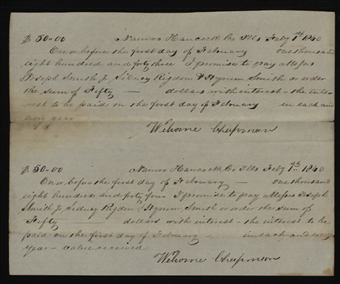 $ 50-00 Nauvoo Hancock Co Ills Feby 1st 1840
On or before the first day of February one thousand
eight hundred and forty three I promise to pay Messrs
Joseph Smith Jr Sidney Rigdon & Hyrum Smith or order
the Sum of Fifty — dollars with interest - the inter-
est to be paid on the first day of February in each and
year
Welcome Chapman
$ 50-00 Nauvoo Hancock Co Ills Feby 1st 1840
On or before the first day of February — one thousand
eight hundred and forty four I promise to pay Messrs Joseph
Smith Jr Sidney Rigdon & Hyrum Smith or order the sum of
Fifty — dollars with interest - the interest to be
paid on the first day of February in each and every
year - value received
Welcome Chapman